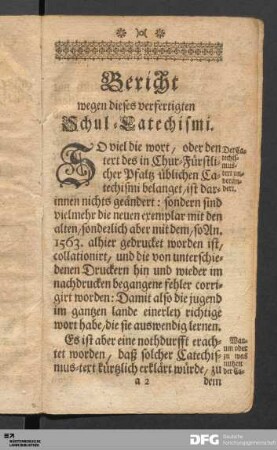 Bericht
wegen dieses verfertigten
Schul-Catechismi.
SO viel die wort, oder den
text des in Chur-Fürstli-
cher Pfaltz üblichen Ca-
techismi belanget, ist dar-
innen nichts geändert: sondern sind
vielmehr die neuen exemplar mit den
alten, sonderlich aber mit dem, so An.
1563. alhier gedrucket worden ist,
collationirt, und die von unterschie-
denen Druckern hin und wieder im
nachdrucken begangene fehler corri-
girt worden: Damit also die jugend
im gantzen lande einerley richtige
wort habe, die sie auswendig lernen.
Es ist aber eine nothdurfft erach-
tet worden, daß solcher Catechis-
mus-text kürtzlich erklärt würde, zu
a 2 dem
Der Ca-
techis-
mus-
text un-
verän-
dert.
War-
um oder
zu was
nutzen
der Ca-
DFG
Deutsche
Forschungsgemeinschaft